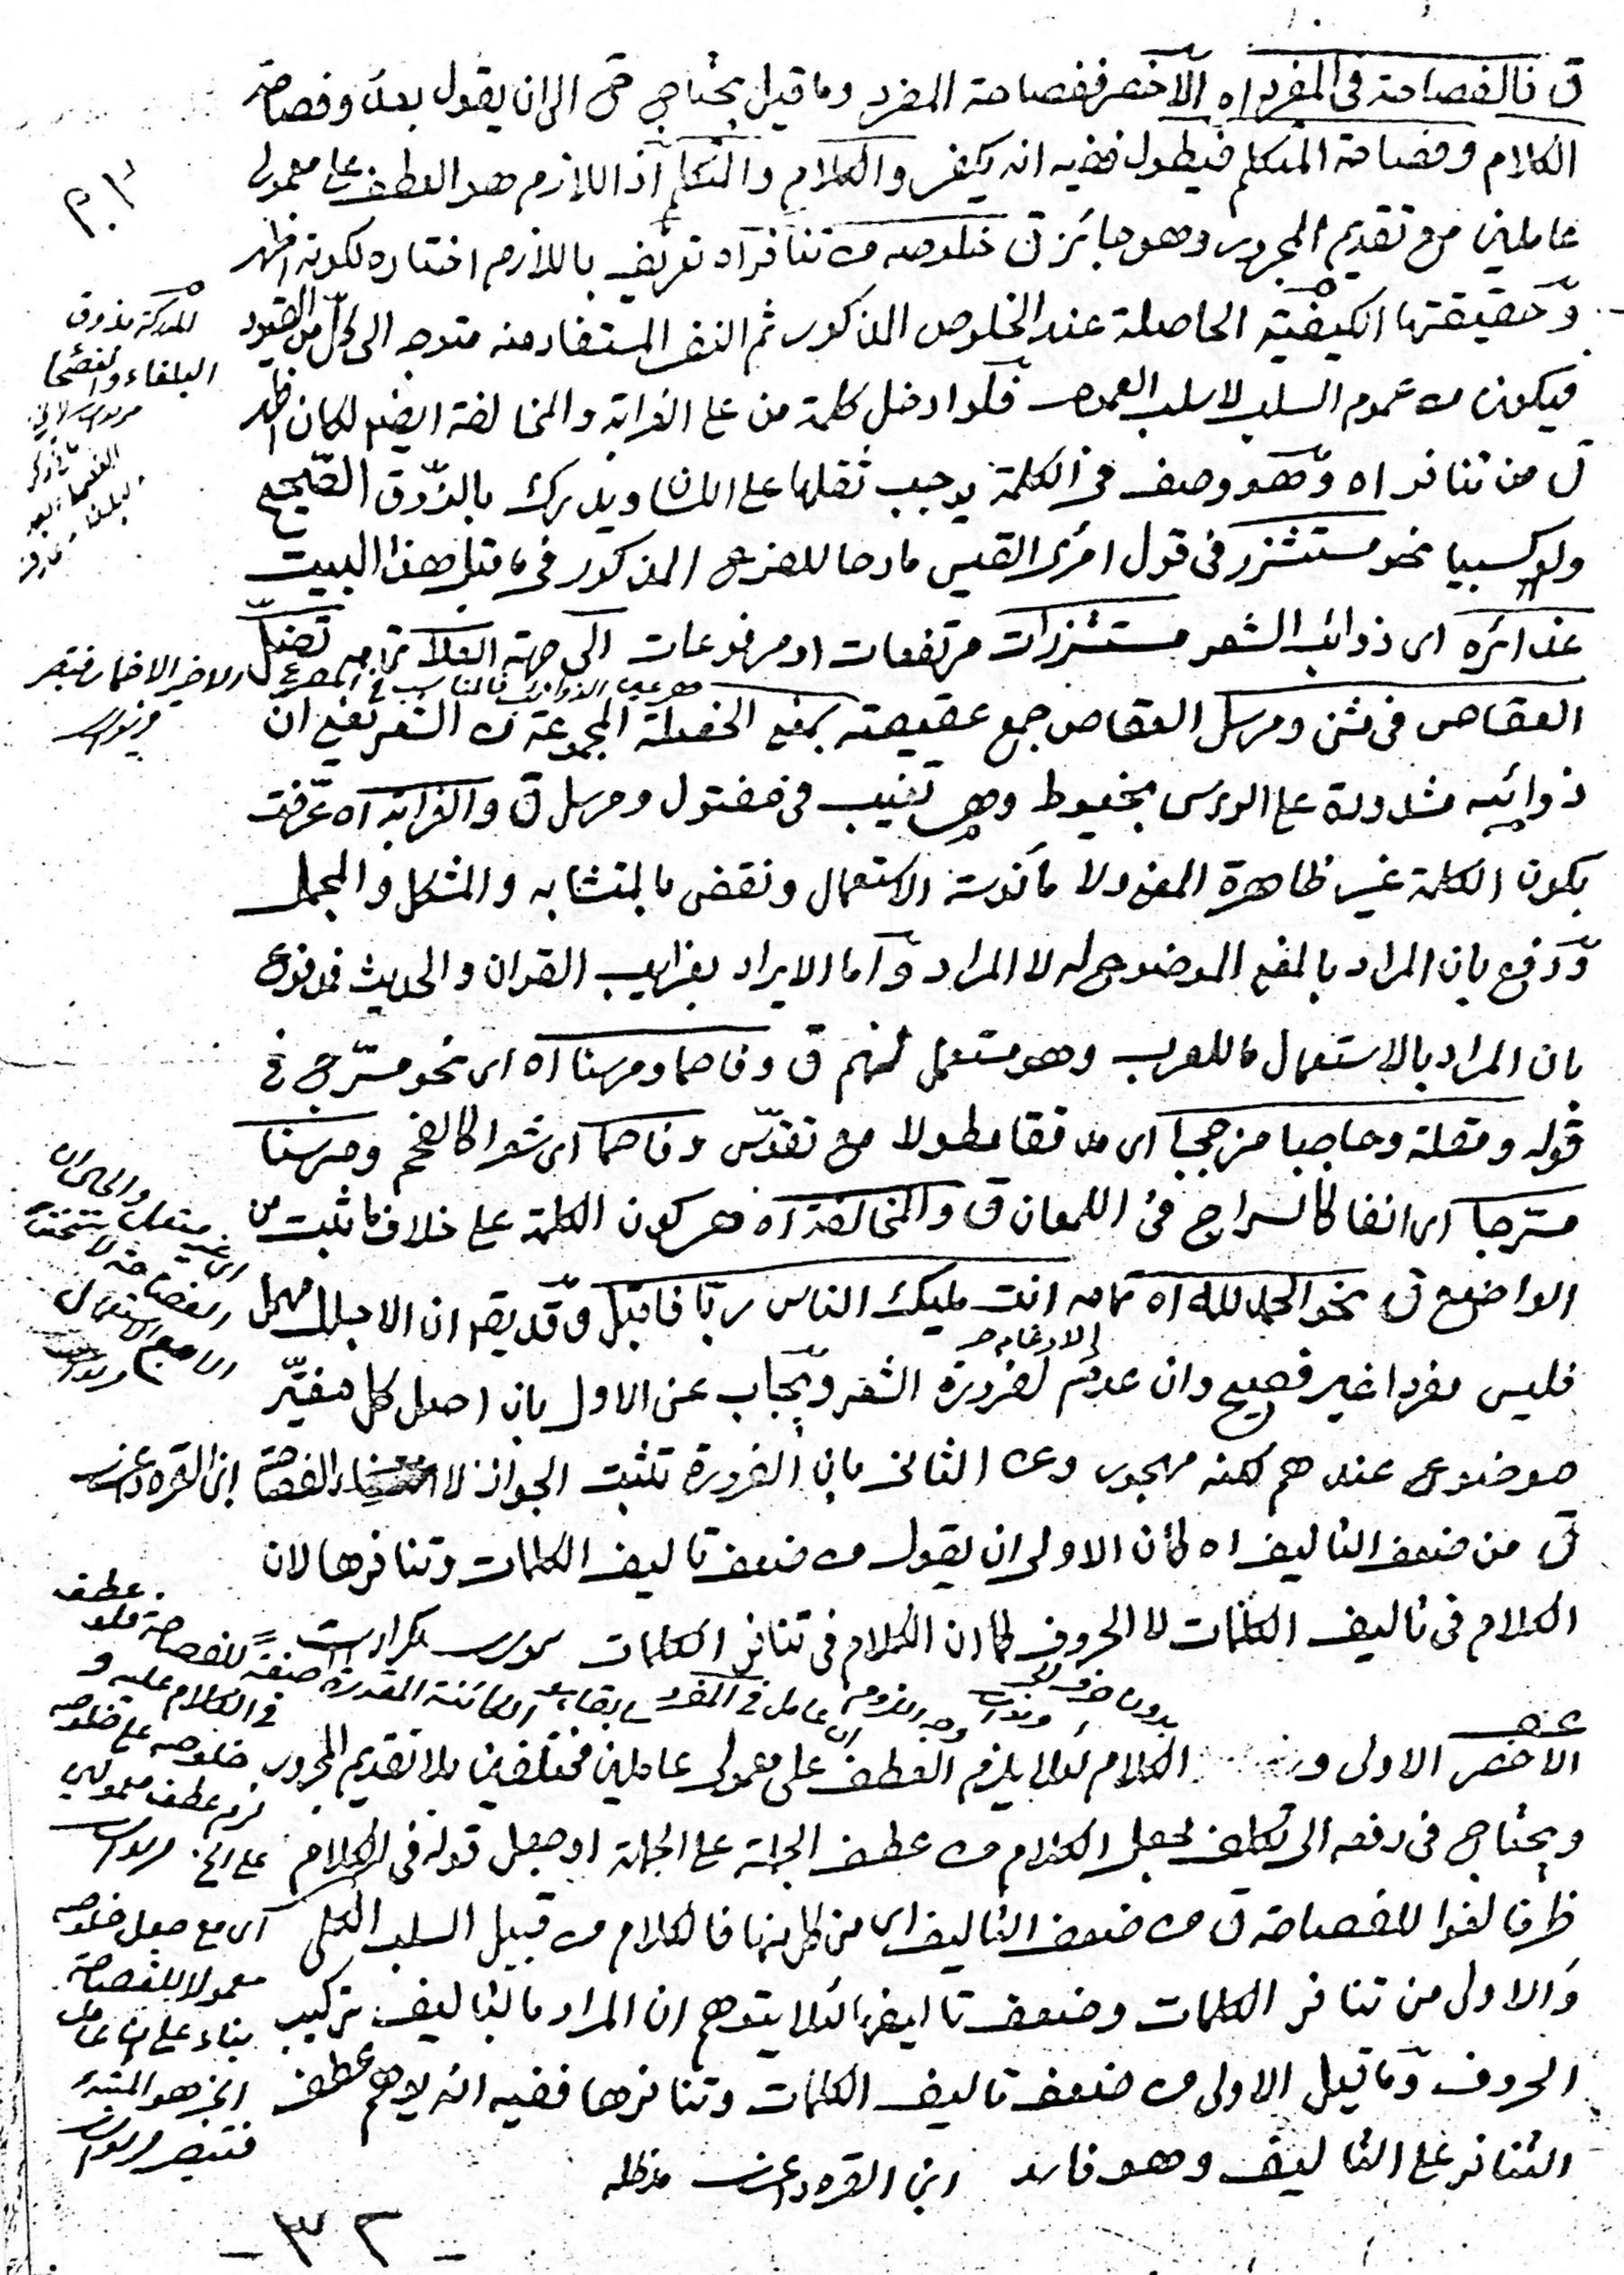 ق فالفصاحة فى المفرد اه الاخصر ففصاحة المفرد وما قيل يحتاج ح الى ان يقول بعد وفصاحة
الكلام وفصاحة المتكلم فيطول ففيه انه يكفى والكلام والمتكلم اذ اللازم هو العطف على معمولى
عاملين مع تقديم المجرور وهو جائز ق خلوصه من تنافر اه تعريف باللازم اختاره لكونه اظهر
وحقيقتها الكيفية الحاصلة عند الخلوص المذكور ثم النفى المستفاد منه متوجه الى كل من القيود
فيكون من عموم السلب لا سلب العموم فلو ادخل كلمة من على الغرابة والمخالفة ايضا لكان اظهر
ق من تنافر اه وهو وصف فى الكلمة يوجب ثقلها على اللسان ويدرك بالذوق الصحيح
ولو كسبيا نحو مستشزر فى قول امرئ القيس مادحا للفرع المذكور فى ما قبل هذا البيت
غدائره اى ذوائب الشعر مستشزرات مرتفعات او مرفوعات الى جهة العلا تمامه تضل
العقاص فى مثنى ومرسل العقاص جمع عقيصة بمعنى الخصلة المجموعة من الشعر يعنى ان
ذوائبه مشدودة على الرأس بخيوط وهى تغيب فى مفتول ومرسل ق والغرابة اه عرفت
بكون الكلمة غير ظاهرة المعنى ولا مأنوسة الاستعمال ونقض بالمتشابه والمشكل والمجمل
ودفع بان المراد بالمعنى الموضوع له لا المراد واما الايراد بغرايب القران والحديث فمدفوع
بان المراد بالاستعمال ما للعرب وهو مستعمل لهم ق وفاحما ومرسنا اه اى نحو مسرج فى
قوله ومقلة وحاجبا مزججا اى مدققا مطولا مع تقوس وفاحما اى شعرا كالفحم ومرسنا
مسرجا اى انفا كالسراج فى اللمعان ق والمخالفة اه هى كون الكلمة على خلاف ما ثبت من
الواضع ق نحو الحمد لله اه تمامه انت مليك الناس ربا فاقبل وقد يقو ان الاجلل مهمل
فليس مفردا غير فصيح وان عدم الادغام لضرورة الشعر ويجاب عن الاول بان اصل كل مغير
موضوع عندهم لكنه مهجور وعن الثانى بان الضرورة تثبت الجواز لا الفصاحة ابن القره داغى
ق من ضعف التاليف اه كأن الاولى ان يقول من ضعف تاليف الكلمات وتنافرها لان
الكلام فى تاليف الكلمات لا الحروف كما ان الكلام فى تنافر الكلمات
الاخصر الاولى الكلام لئلا يلزم العطف على معمولى عاملين مختلفين بلا تقديم المجرور
ويحتاج فى دفعه الى تكلف بجعل الكلام من عطف الجملة على الجملة او جعل قوله فى الكلام
ظرفا لغوا للفصاحة ق من ضعف التاليف اى من كل منها فالكلام من قبيل السلب الكلى
والاولى من تنافر الكلمات وضعف تاليفها لئلا يتوهم ان المراد بالتاليف تركيب
الحروف وما قيل الاولى من ضعف تاليف الكلمات وتنافرها ففيه انه يوهم عطف
التنافر على التاليف وهو فاسد ابن القره داغى مدظله
المدركة بذوق
البلغاء والفصحا
عطف
فى الكلام عليه و
خلوصه على خلوصه
لزم عطف معمولين
اى مع جعل خلوصه
معمولا للفصاحة
بناء على ان عامل
الخبر هو المبتدأ
فتبصر
- ٣٢ -